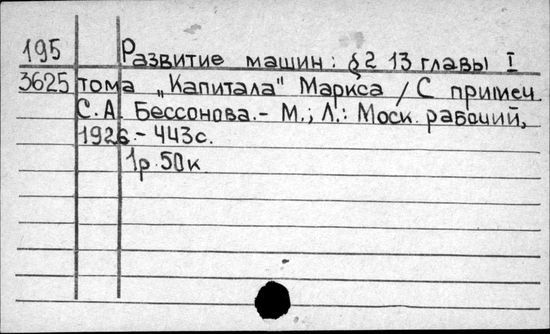 195 Развитие машин: §2 13 главы I
3625 тома „Капитала" Маркса / С примеч.
С.А. Бессонова.- М.; Л.: Моск. рабочий,
1926.- 443с.
1р.50к